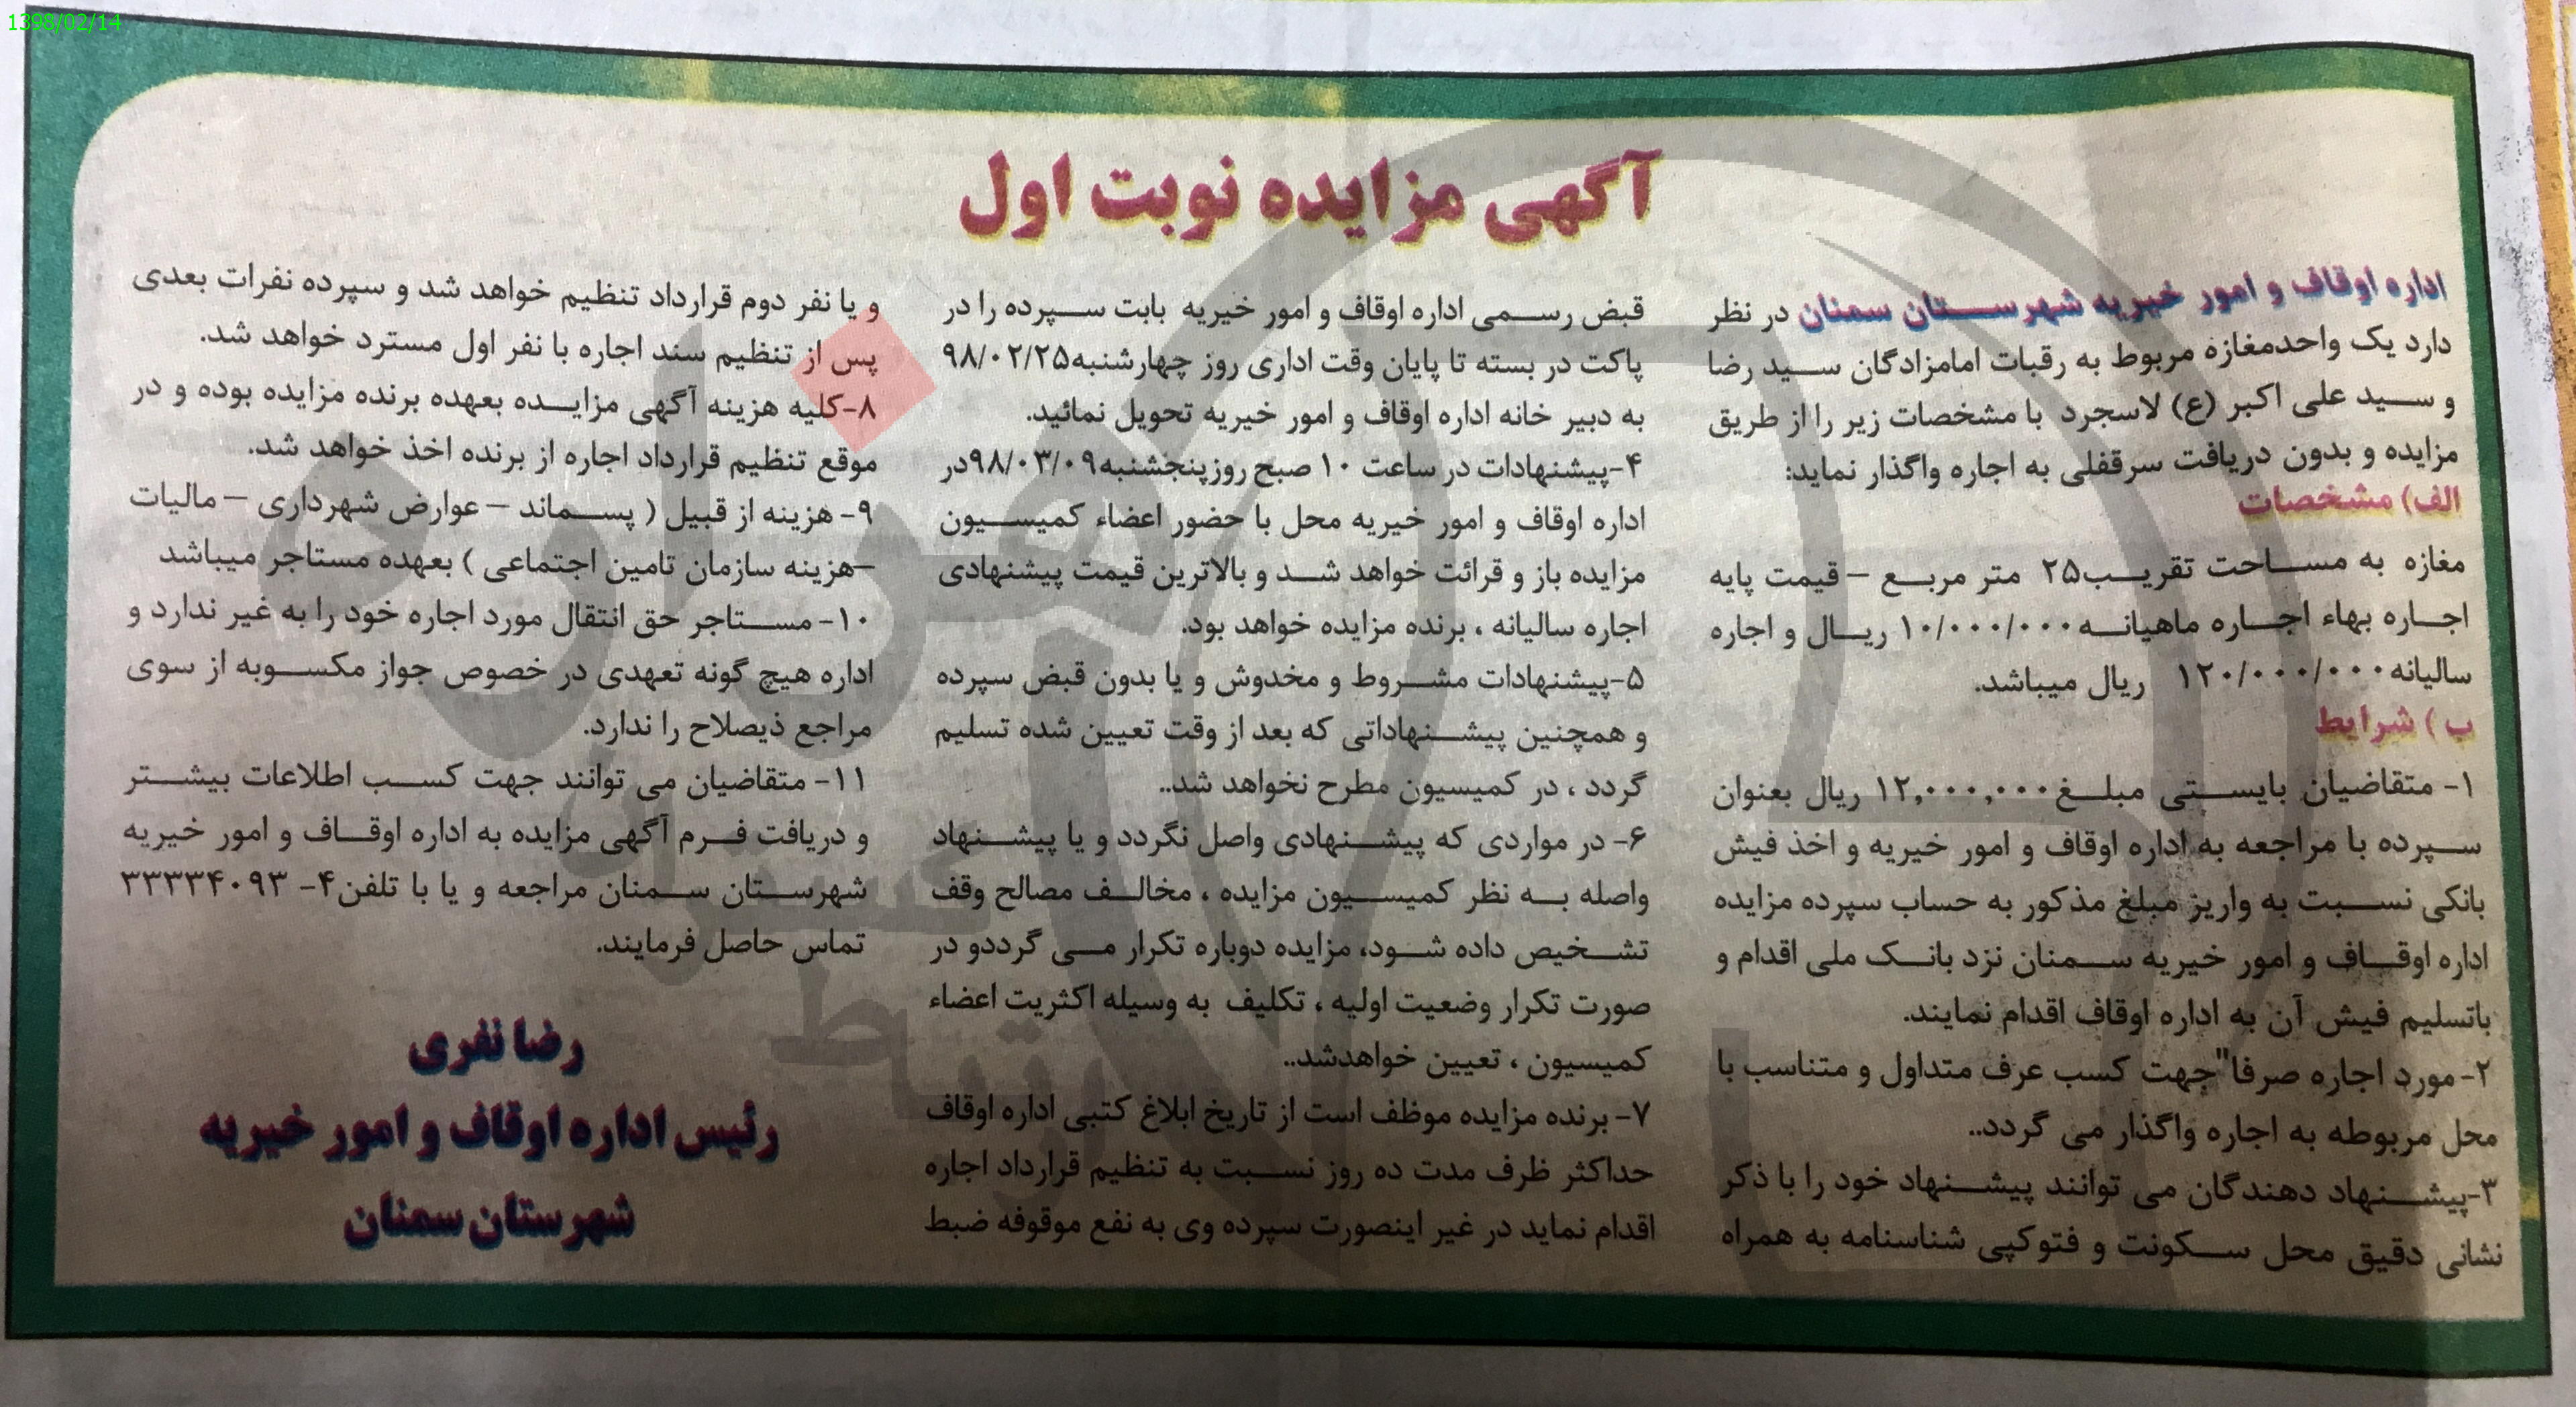 1398/02/14
آگهی مزایده نوبت اول
اداره اوقاف و امور خیریه شهرستان سمنان در نظر
دارد یک واحدمغازه مربوط به رقبات امامزادگان سید رضا
و سید علی اکبر (ع) لاسجرد با مشخصات زیر را از طریق
مزایده و بدون دریافت سرقفلی به اجاره واگذار نماید:
الف) مشخصات
مغازه به مساحت تقریب۲۵ متر مربع – قیمت پایه
اجاره بهاء اجاره ماهیانه۱۰/۰۰۰/۰۰۰ ریال و اجاره
سالیانه۱۲۰/۰۰۰/۰۰۰ ریال میباشد.
ب ) شرایط
۱- متقاضیان بایستی مبلغ۱۲,۰۰۰,۰۰۰ ریال بعنوان
سپرده با مراجعه به اداره اوقاف و امور خیریه و اخذ فیش
بانکی نسبت به واریز مبلغ مذکور به حساب سپرده مزایده
اداره اوقاف و امور خیریه سمنان نزد بانک ملی اقدام و
باتسلیم فیش آن به اداره اوقاف اقدام نمایند.
۲- مورد اجاره صرفا"جهت کسب عرف متداول و متناسب با
محل مربوطه به اجاره واگذار می گردد..
۳-پیشنهاد دهندگان می توانند پیشنهاد خود را با ذکر
نشانی دقیق محل سکونت و فتوکپی شناسنامه به همراه
قبض رسمی اداره اوقاف و امور خیریه بابت سپرده را در
پاکت در بسته تا پایان وقت اداری روز چهارشنبه۹۸/۰۲/۲۵
به دبیر خانه اداره اوقاف و امور خیریه تحویل نمائید.
۴-پیشنهادات در ساعت ۱۰ صبح روزپنجشنبه۹۸/۰۳/۰۹در
اداره اوقاف و امور خیریه محل با حضور اعضاء کمیسیون
مزایده باز و قرائت خواهد شد و بالاترین قیمت پیشنهادی
اجاره سالیانه ، برنده مزایده خواهد بود.
۵-پیشنهادات مشروط و مخدوش و یا بدون قبض سپرده
و همچنین پیشنهاداتی که بعد از وقت تعیین شده تسلیم
گردد ، در کمیسیون مطرح نخواهد شد..
۶- در مواردی که پیشنهادی واصل نگردد و یا پیشنهاد
واصله به نظر کمیسیون مزایده ، مخالف مصالح وقف
تشخیص داده شود، مزایده دوباره تکرار می گرددو در
صورت تکرار وضعیت اولیه ، تکلیف به وسیله اکثریت اعضاء
کمیسیون ، تعیین خواهدشد..
۷- برنده مزایده موظف است از تاریخ ابلاغ کتبی اداره اوقاف
حداکثر ظرف مدت ده روز نسبت به تنظیم قرارداد اجاره
اقدام نماید در غیر اینصورت سپرده وی به نفع موقوفه ضبط
و یا نفر دوم قرارداد تنظیم خواهد شد و سپرده نفرات بعدی
پس از تنظیم سند اجاره با نفر اول مسترد خواهد شد.
۸-کلیه هزینه آگهی مزایده بعهده برنده مزایده بوده و در
موقع تنظیم قرارداد اجاره از برنده اخذ خواهد شد.
۹- هزینه از قبیل ( پسماند – عوارض شهرداری – مالیات
–هزینه سازمان تامین اجتماعی ) بعهده مستاجر میباشد
۱۰- مستاجر حق انتقال مورد اجاره خود را به غیر ندارد و
اداره هیچ گونه تعهدی در خصوص جواز مکسوبه از سوی
مراجع ذیصلاح را ندارد.
۱۱- متقاضیان می توانند جهت کسب اطلاعات بیشتر
و دریافت فرم آگهی مزایده به اداره اوقاف و امور خیریه
شهرستان سمنان مراجعه و یا با تلفن۴- ۳۳۳۳۴۰۹۳
تماس حاصل فرمایند.
رضا نفری
رئیس اداره اوقاف و امور خیریه
شهرستان سمنان